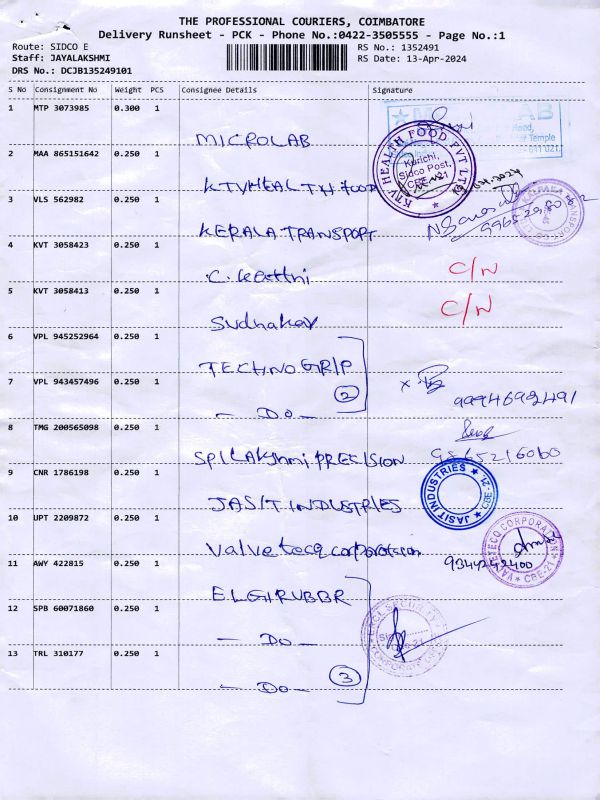 THE PROFESSIONAL COURIERS, COIMBATORE
Delivery Runsheet - PCK - Phone No.:0422-3505555 - Page No.:1
Route: SIDCO E
RS No.: 1352491
Staff: JAYALAKSHMI
RS Date: 13-Apr-2024
DRS No.: DCJB135249101
S No Consignment No Weight PCS Consignee Details Signature
1 MTP 3073985 0.300 1
MICROLAB
2 MAA 865151642 0.250 1
KTVHEALTH FOOD
KTV HEALTH FOOD PVT LTD
Kurichi,
Sidco Post,
CBE-21
3 VLS 562982 0.250 1
KERALA TRANSPORT
4 KVT 3058423 0.250 1
C/N
5 KVT 3058413 0.250 1
Sudhakar
C/N
6 VPL 945252964 0.250 1
TECHNOGRIP
7 VPL 943457496 0.250 1
2
9994692491
- DO -
8 TMG 200565098 0.250 1
SRI LAKSHMI PRECISION
9865216060
9 CNR 1786198 0.250 1
JASIT INDUSTRIES
JASIT INDUSTRIES
CBE-21
10 UPT 2209872 0.250 1
Valvetecq corporation
VALVETECQ CORPORATION
CBE-21
9344242400
11 AWY 422815 0.250 1
ELGIRUBBR
12 SPB 60071860 0.250 1
- DO -
13 TRL 310177 0.250 1
3
- DO -